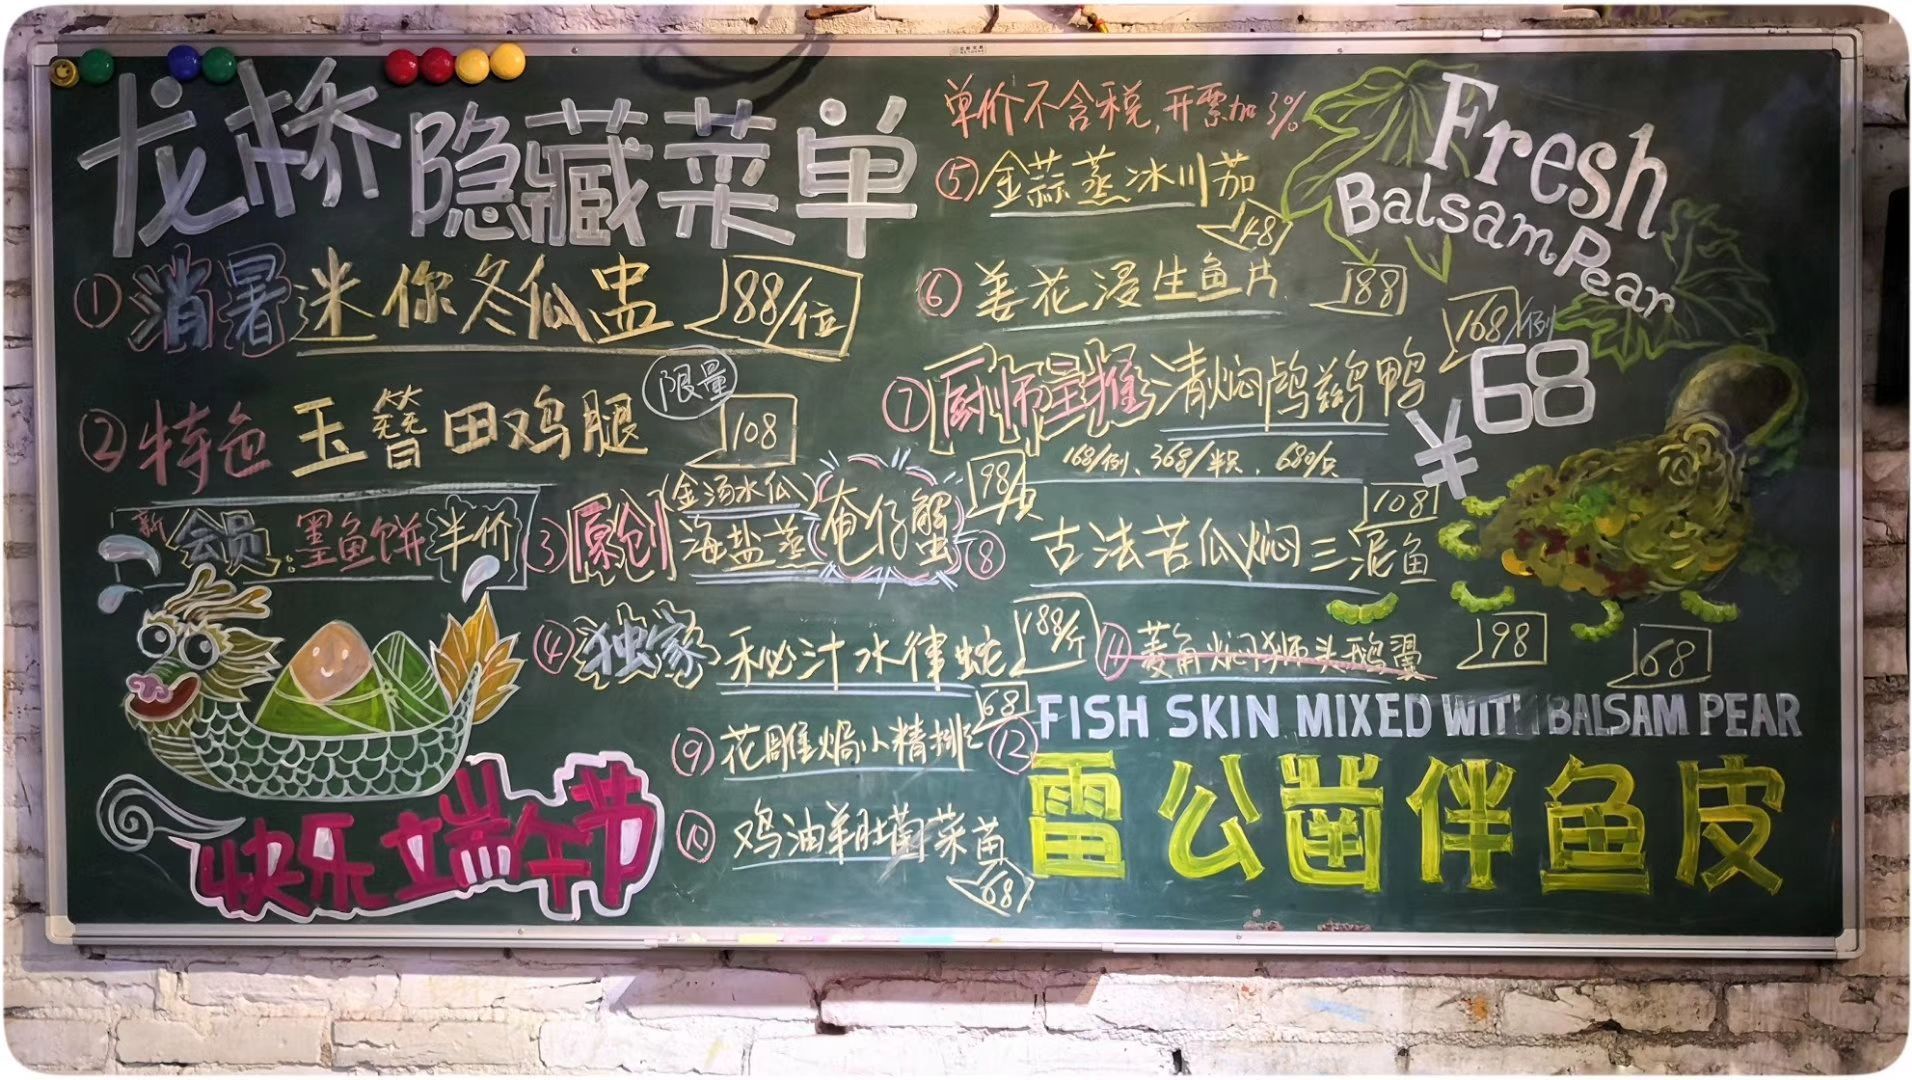 龙桥隐藏菜单
①消暑迷你冬瓜盅 88/位
②特色玉簪田鸡腿 限量 108
新会员:墨鱼饼半价
③原创 金汤水瓜
海盐蒸奄仔蟹 98/只
④独家秘汁水律蛇 188/斤
⑨花雕焗小精排 68
⑩鸡油羊肚菌菜苗 68
快乐端午节
单价不含税,开票加3%
⑤金蒜蒸冰川茄 48
⑥姜花浸生鱼片 188
⑦厨师呈推清焖鸬鹚鸭 168/例
168/例、368/半只、680/只
⑧古法苦瓜焖三泥鱼 108
⑪菱角焖狮头鹅翼 98
Fresh
Balsam Pear
¥68
68
⑫FISH SKIN MIXED WITH BALSAM PEAR
雷公凿伴鱼皮